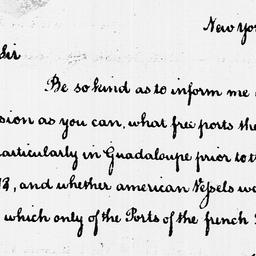 New Yo
Sir
Be so kind as to inform me
sion as you can, what free ports the
articularly in Guadaloupe prior to t
and whether american Vessels w
which only of the Ports of the french